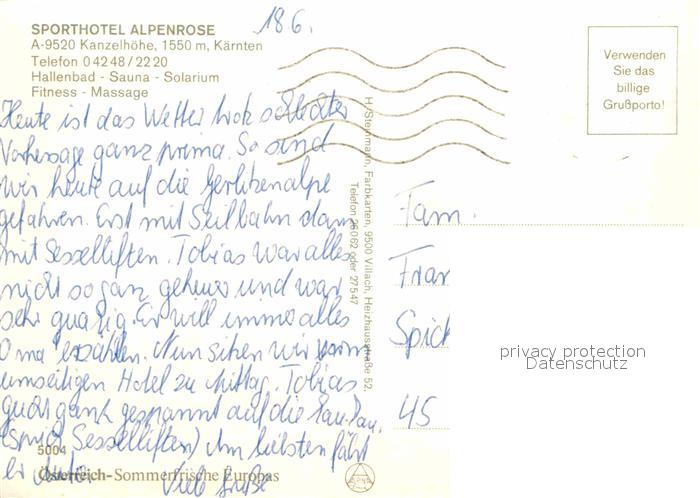 SPORTHOTEL ALPENROSE
A-9520 Kanzelhöhe, 1550 m, Kärnten
Telefon 0 42 48 / 22 20
Hallenbad - Sauna - Solarium
Fitness - Massage
18 6.
Verwenden
Sie das
billige
Grußporto!
Heute ist das Wetter trotz schlechter
Vorhersage ganz prima. So sind
wir heute auf die Gerlitzenalpe
gefahren. Erst mit Seilbahn dann
mit Sesselliften. Tobias war alles
nicht so ganz geheuer und war
sehr quatig. Er will immer alles
Oma erzählen. Nun sitzen wir vorm
umseitigen Hotel zu Mittag. Tobias
guckt ganz gespannt auf die
(sprich Sesselliften) Am liebsten fährt
er Auto. Viele Grüße
H. Steinmann, Farbkarten, 9500 Villach, Heizhausstraße 52,
Telefon 26062 oder 27547
Fam.
Fran
Spich
45
privacy protection
Datenschutz
5004
Österreich-Sommerfrische Europas